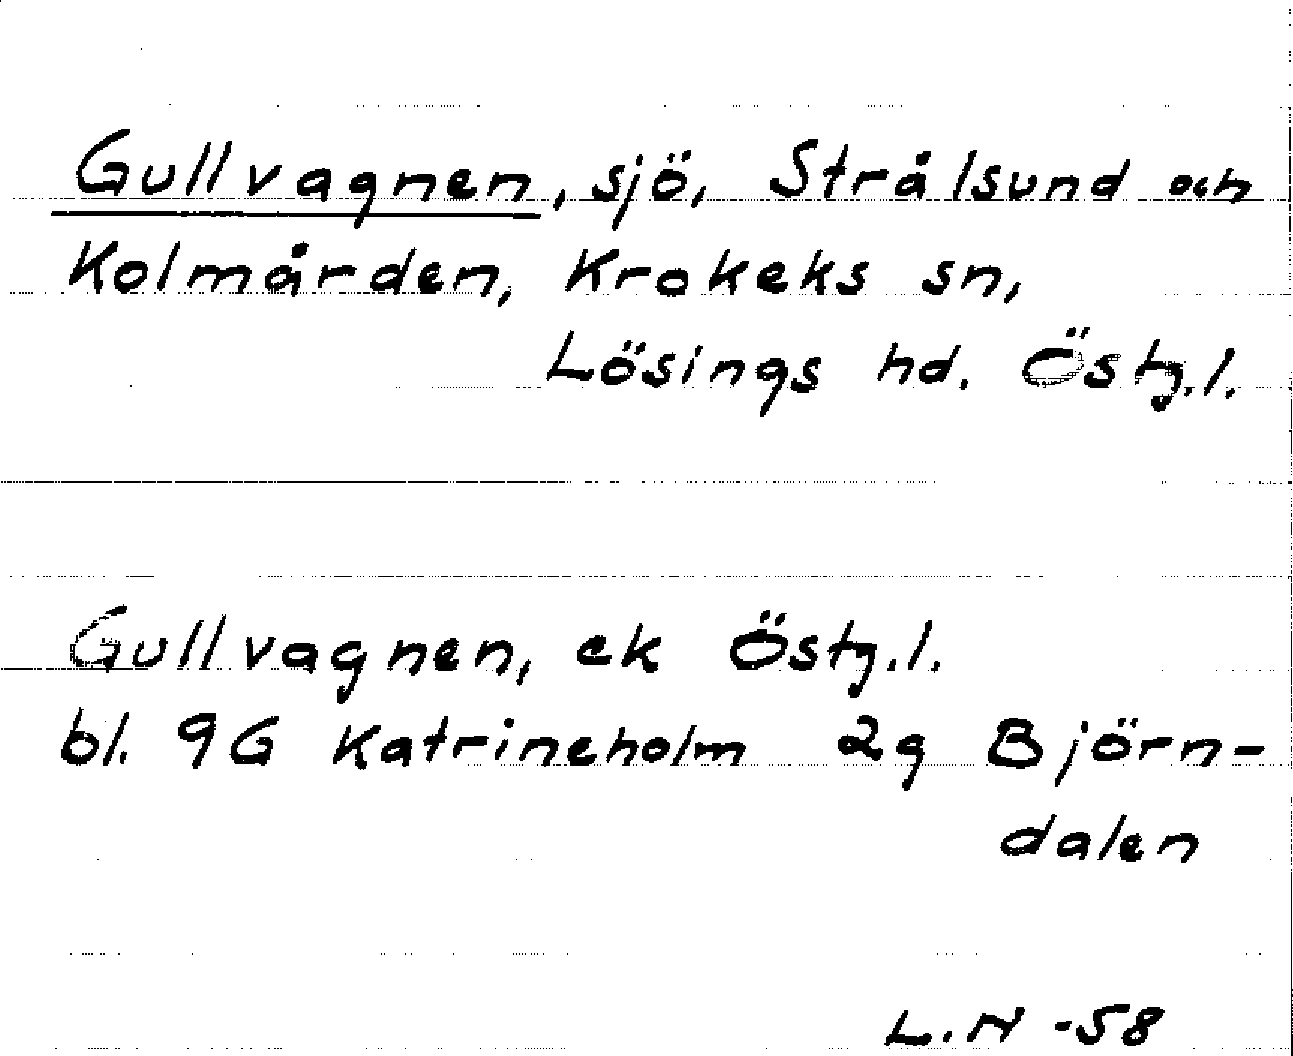 Gullvagnen, sjö, Strålsund och
Kolmården, Krokeks sn,
Lösings hd. Östg.l.
Gullvagnen, ek Östg.l.
bl. 9G Katrineholm 2g Björn-
dalen
L.N -58